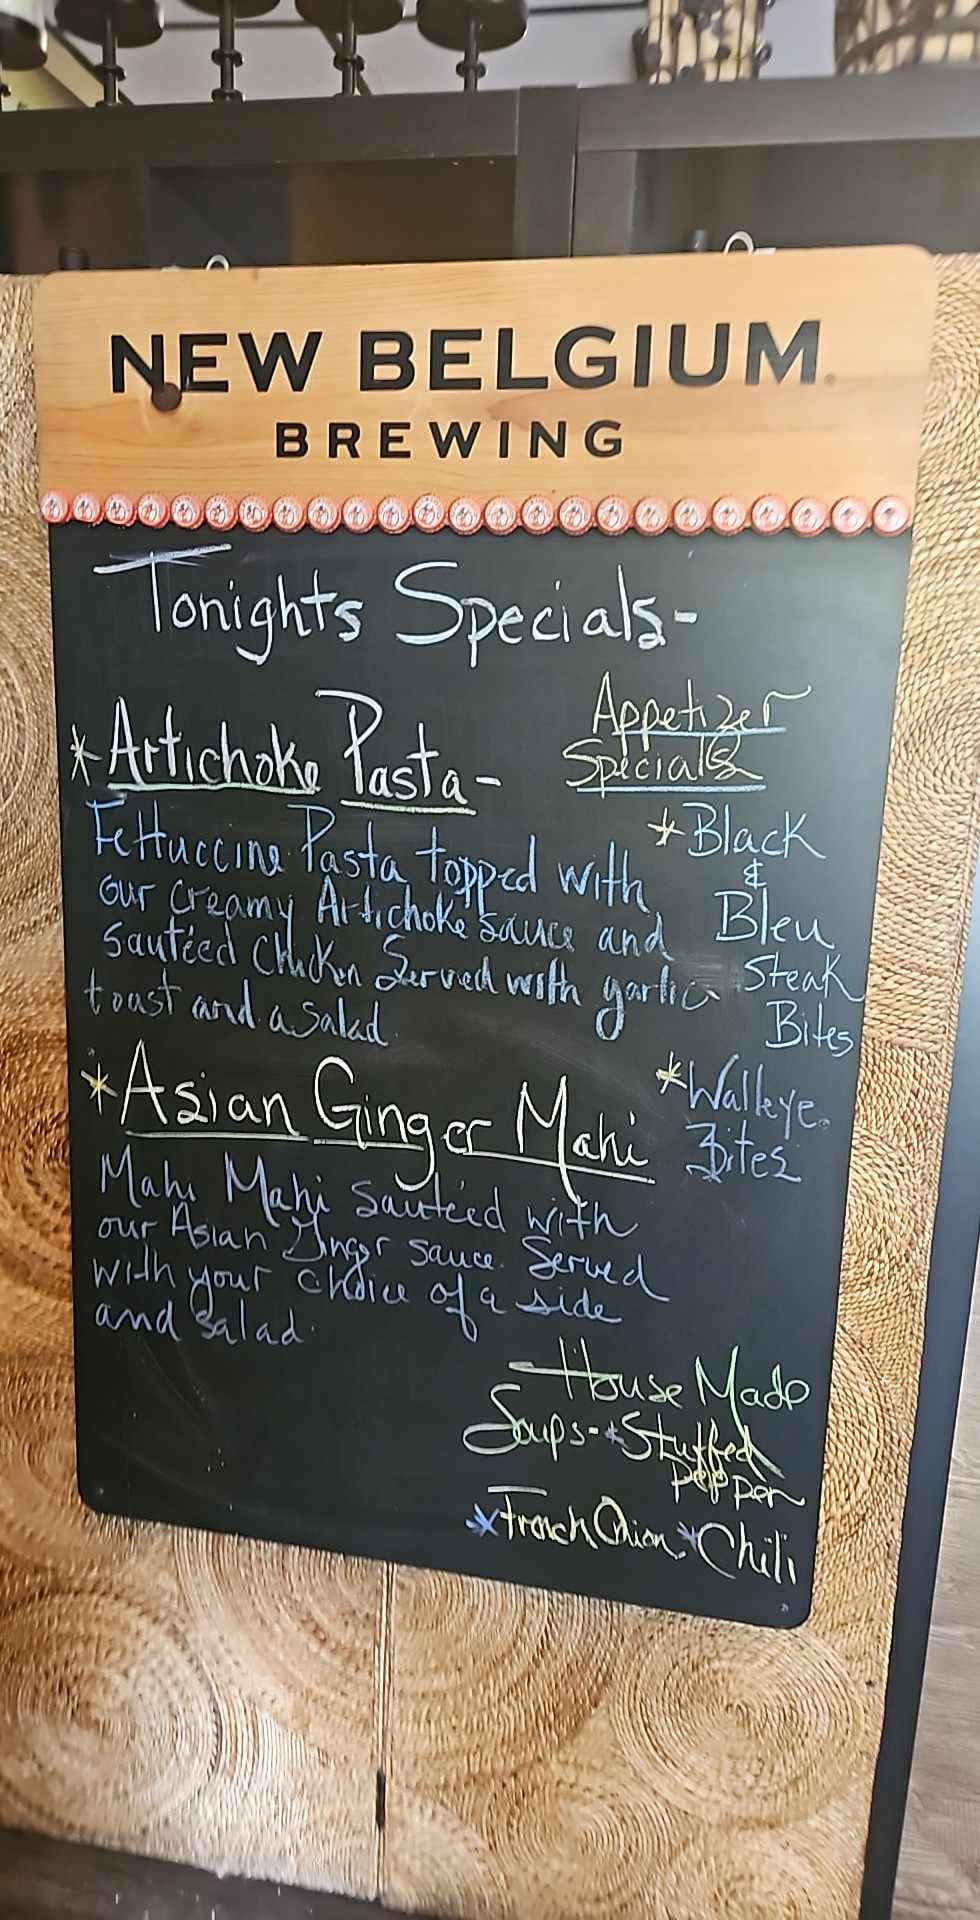 NEW BELGIUM
BREWING
Tonights Specials-
*Artichoke Pasta-
Fettuccine Pasta topped with
our creamy Artichoke sauce and
sautéed Chicken Served with garlic
toast and a salad.
*Asian Ginger Mahi
Mahi Mahi sautéed with
our Asian Ginger sauce. Served
with your choice of a side
and salad.
Appetizer
Specials
*Black
&
Bleu
Steak
Bites
*Walleye
Bites
House Made
Soups-*Stuffed
pepper
*French Onion *Chili